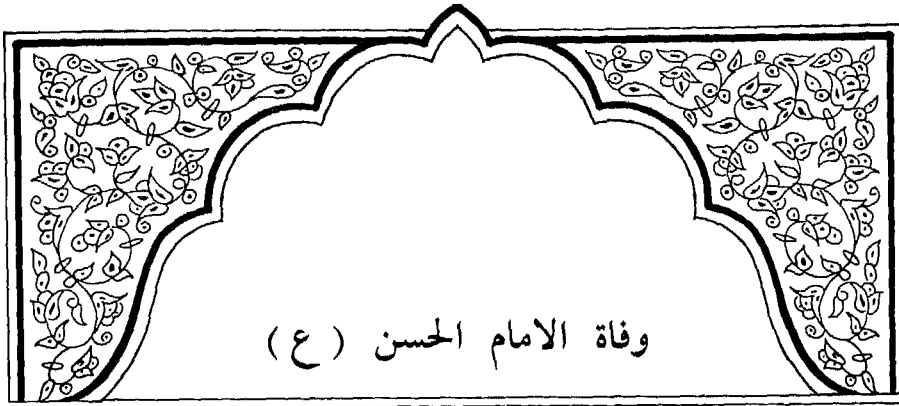 وفاة الامام الحسن ( ع )